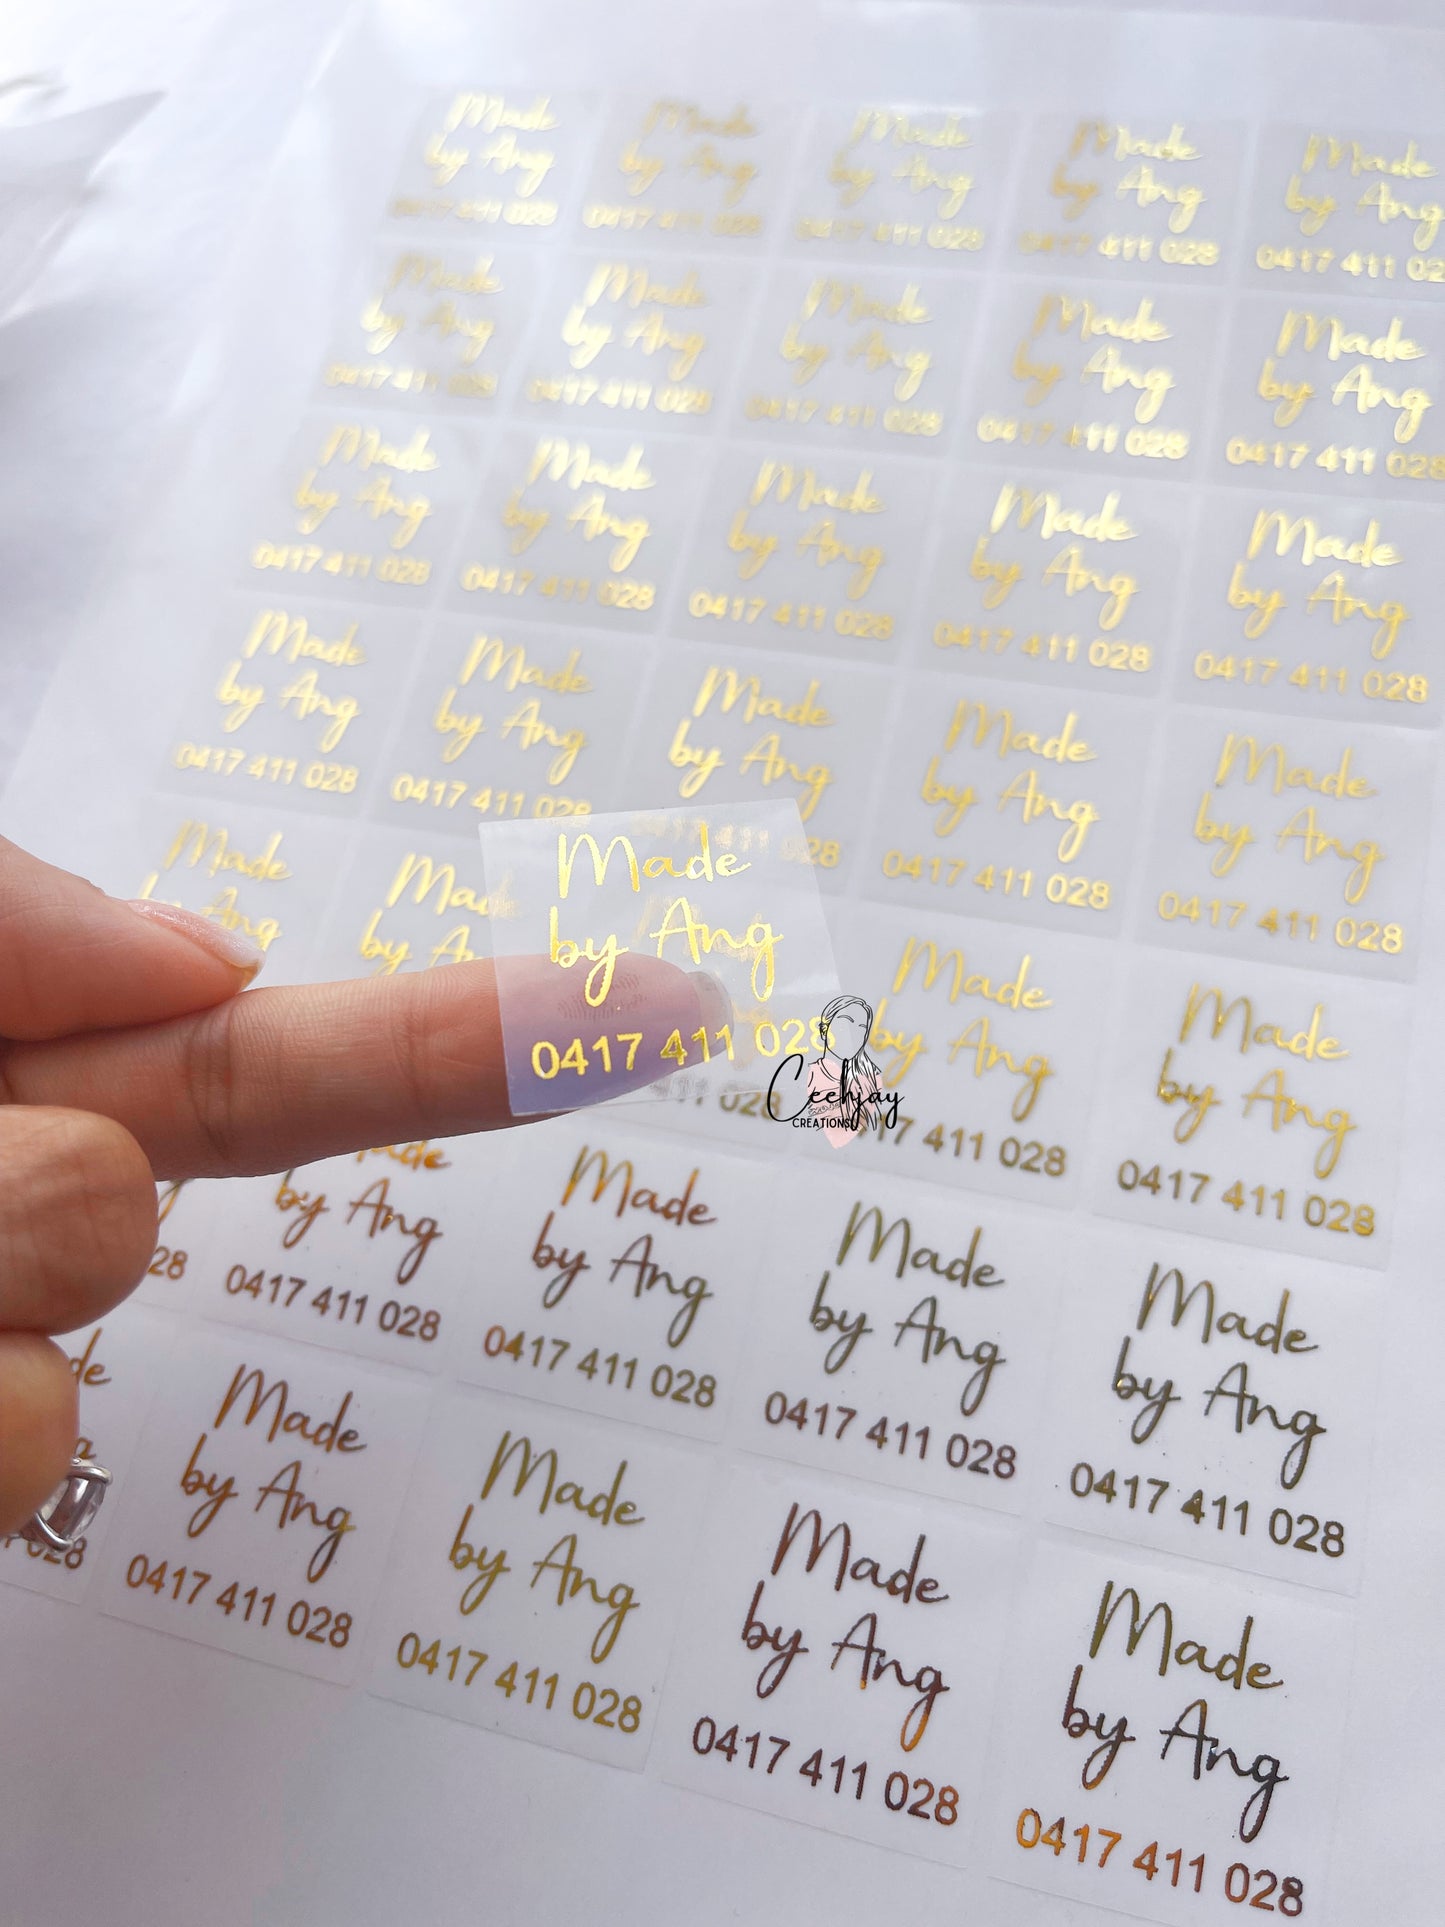 Made
by Ang
0417 411 028
Made
by Ang
0417 411 028
Made
by Ang
0417 411 028
Made
by Ang
0417 411 028
Made
by Ang
0417 411 02
Made
by Ang
0417 411 028
Made
by Ang
0417 411 028
Made
by Ang
0417 411 028
Made
by Ang
0417 411 028
Made
by Ang
0417 411 028
Made
by Ang
0417 411 028
Made
by Ang
0417 411 028
Made
by Ang
0417 411 028
Made
by Ang
0417 411 028
Made
by Ang
0417 411 028
Made
by Ang
0417 411 028
Made
by Ang
0417 411 028
Made
by Ang
28
Made
by Ang
0417 411 028
Made
by Ang
0417 411 028
Made
Ang
Made
by Ang
0417 411 028
Ceehjay
CREATIONS
Made
by Ang
17 411 028
Made
by Ang
0417 411 028
28
by Ang
0417 411 028
Made
by Ang
0417 411 028
Made
by Ang
0417 411 028
Made
by Ang
0417 411 028
Made
by Ang
0417 411 028
Made
by Ang
0417 411 028
Made
by Ang
0417 411 028
Made
by Ang
0417 411 028